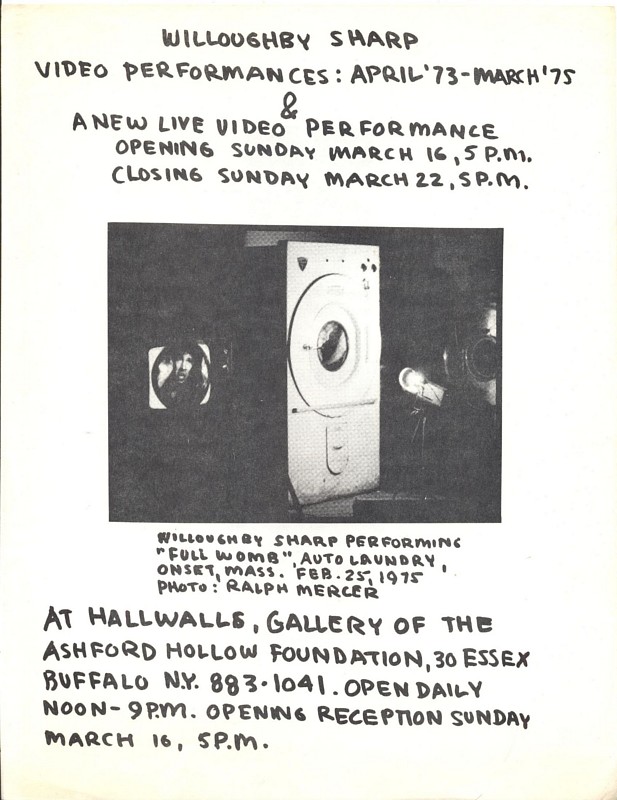 WILLOUGHBY SHARP
VIDEO PERFORMANCES: APRIL '73-MARCH '75
&
A NEW LIVE VIDEO PERFORMANCE
OPENING SUNDAY MARCH 16, 5 P.M.
CLOSING SUNDAY MARCH 22, 5 P.M.
WILLOUGHBY SHARP PERFORMING
"FULL WOMB", AUTO LAUNDRY,
ONSET, MASS. FEB. 25, 1975
PHOTO: RALPH MERCER
AT HALLWALLS, GALLERY OF THE
ASHFORD HOLLOW FOUNDATION, 30 ESSEX
BUFFALO N.Y. 883-1041. OPEN DAILY
NOON-9P.M. OPENING RECEPTION SUNDAY
MARCH 16, 5P.M.